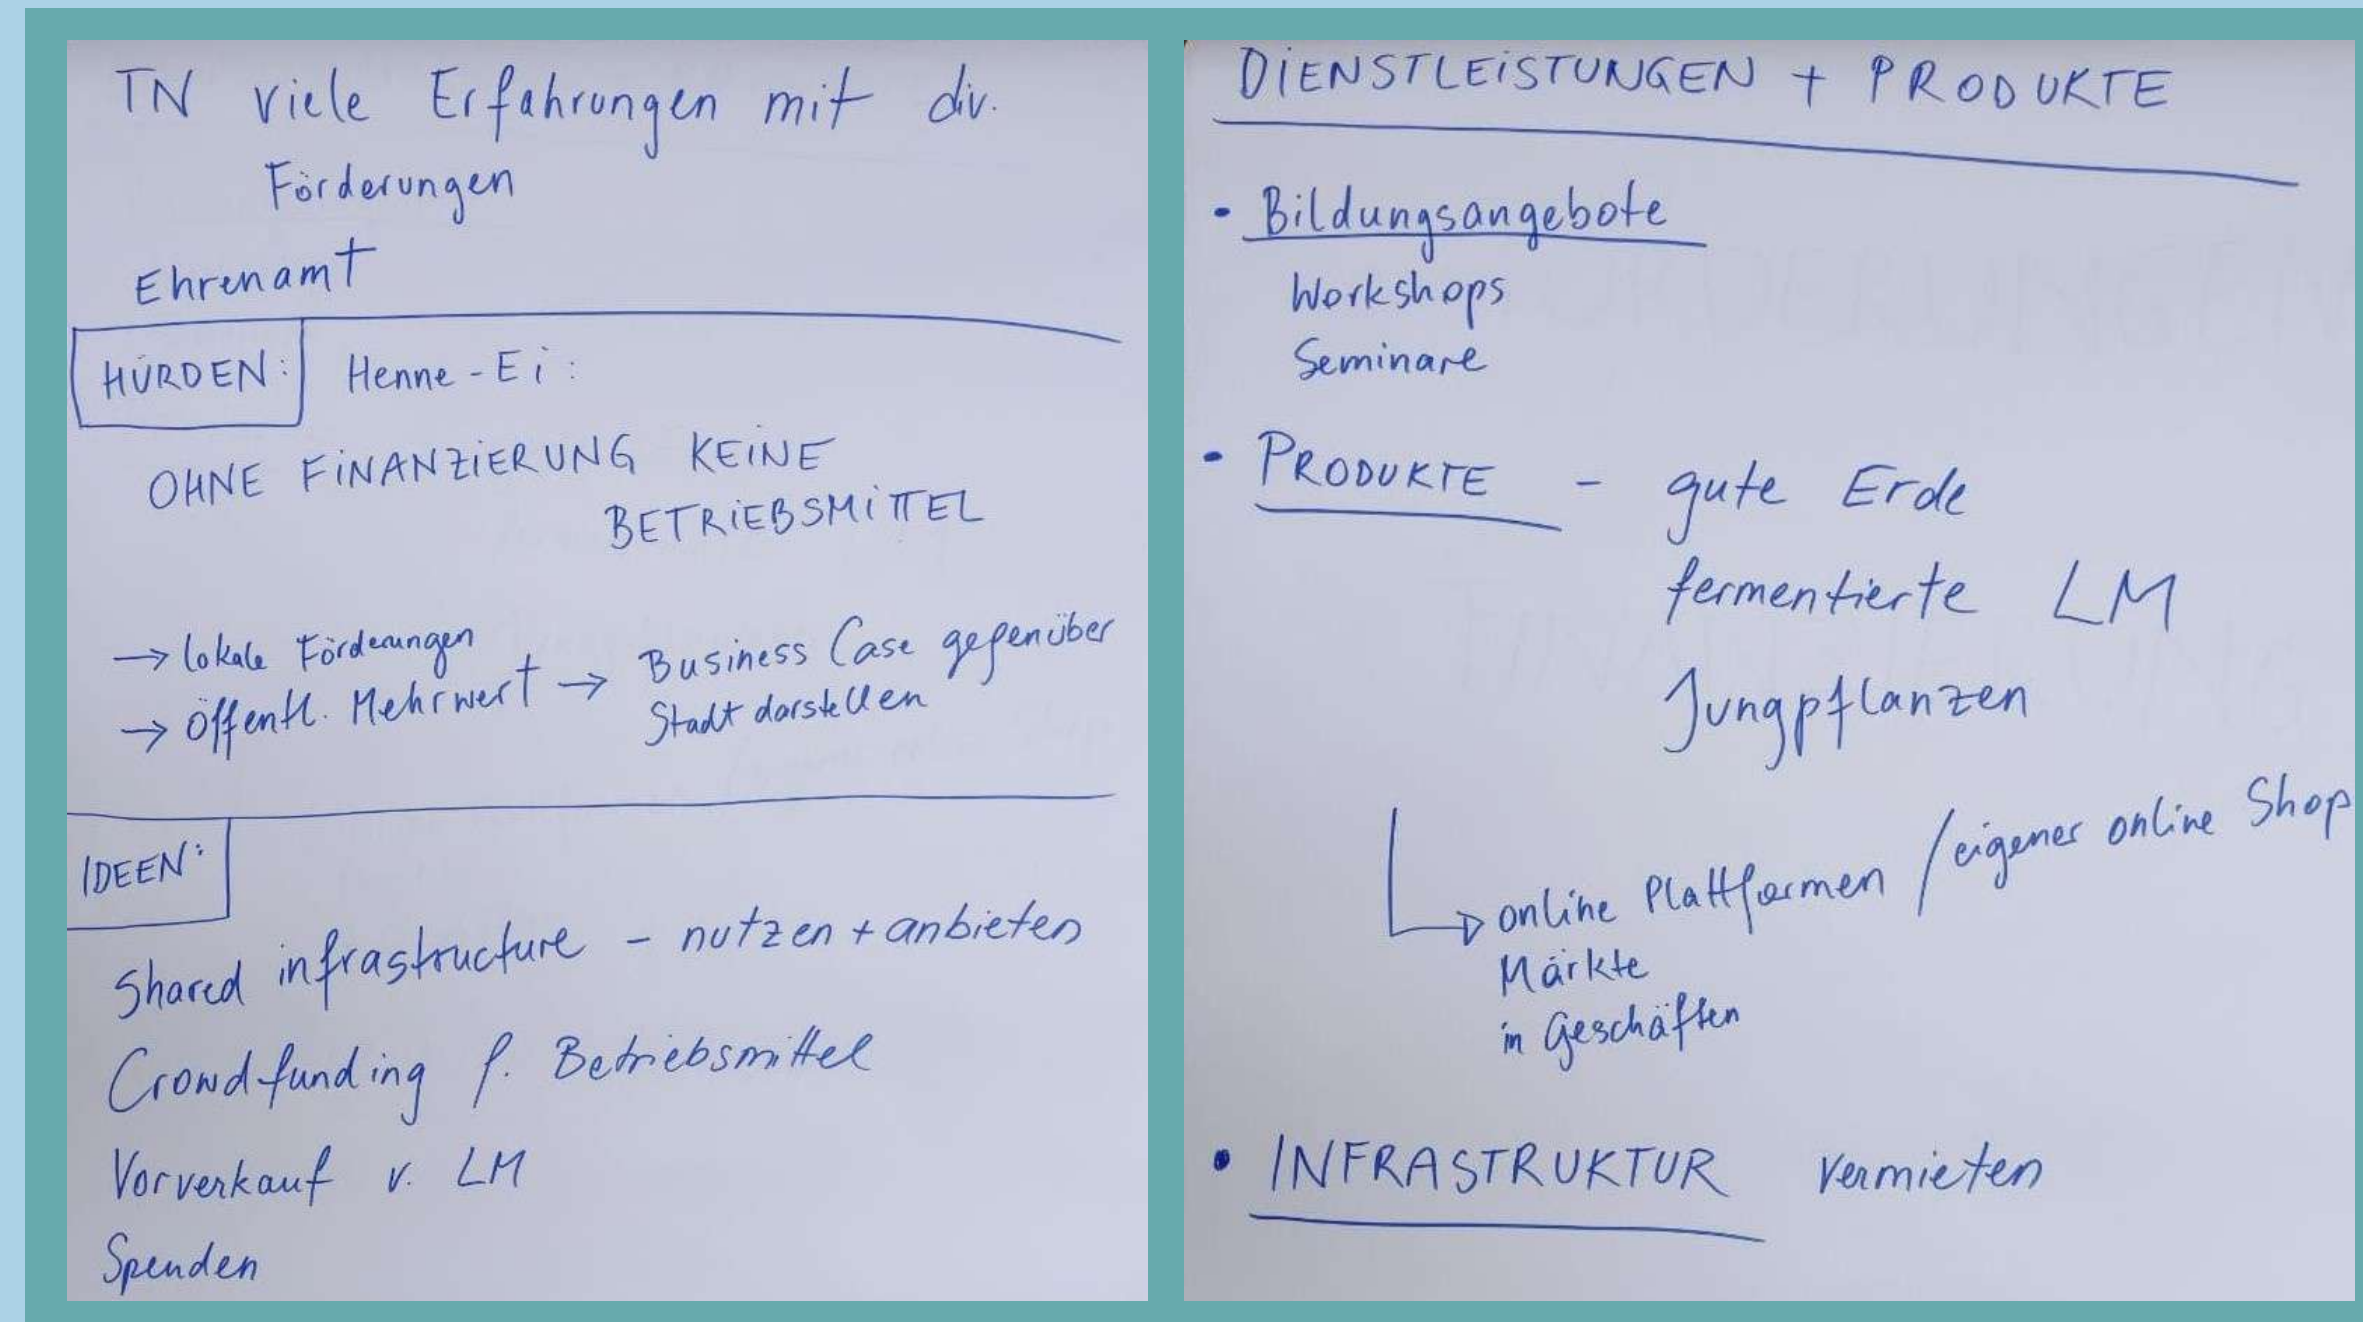 TN viele Erfahrungen mit div.
Förderungen
Ehrenamt
HÜRDEN: Henne - Ei :
OHNE FINANZIERUNG KEINE
BETRIEBSMITTEL
→ lokale Förderungen
→ öffentl. Mehrwert → Business Case gegenüber
Stadt darstellen
IDEEN:
Shared infrastructure - nutzen + anbieten
Crowdfunding f. Betriebsmittel
Vorverkauf v. LM
Spenden
DIENSTLEISTUNGEN + PRODUKTE
• Bildungsangebote
Workshops
Seminare
• PRODUKTE - gute Erde
fermentierte LM
Jungpflanzen
→ online Plattformen / eigener online Shop
Märkte
in Geschäften
• INFRASTRUKTUR vermieten